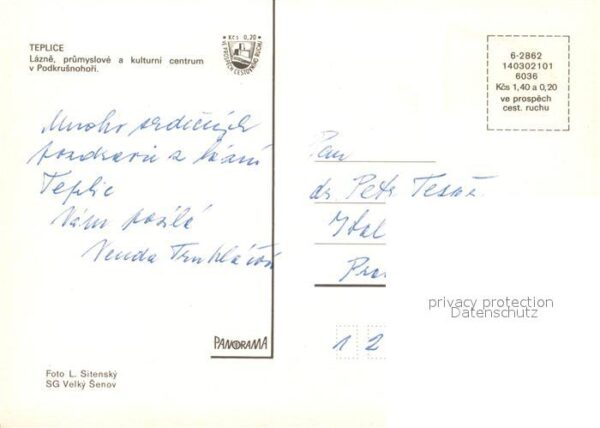 TEPLICE
Lázně, průmyslové a kulturní centrum
v Podkrušnohoří.
Kčs 0,20
VE PROSPĚCH CESTOVNÍHO RUCHU
6-2862
140302101
6036
Kčs 1,40 a 0,20
ve prospěch
cest. ruchu
Mnoho srdečných
pozdravů z lázní
Teplic
Vám posílá
Venda Truhlářová
Pan
dr. Petr Tesař
Ital
Pra
1 2
privacy protection
Datenschutz
PANORAMA
Foto L. Sitenský
SG Velký Šenov